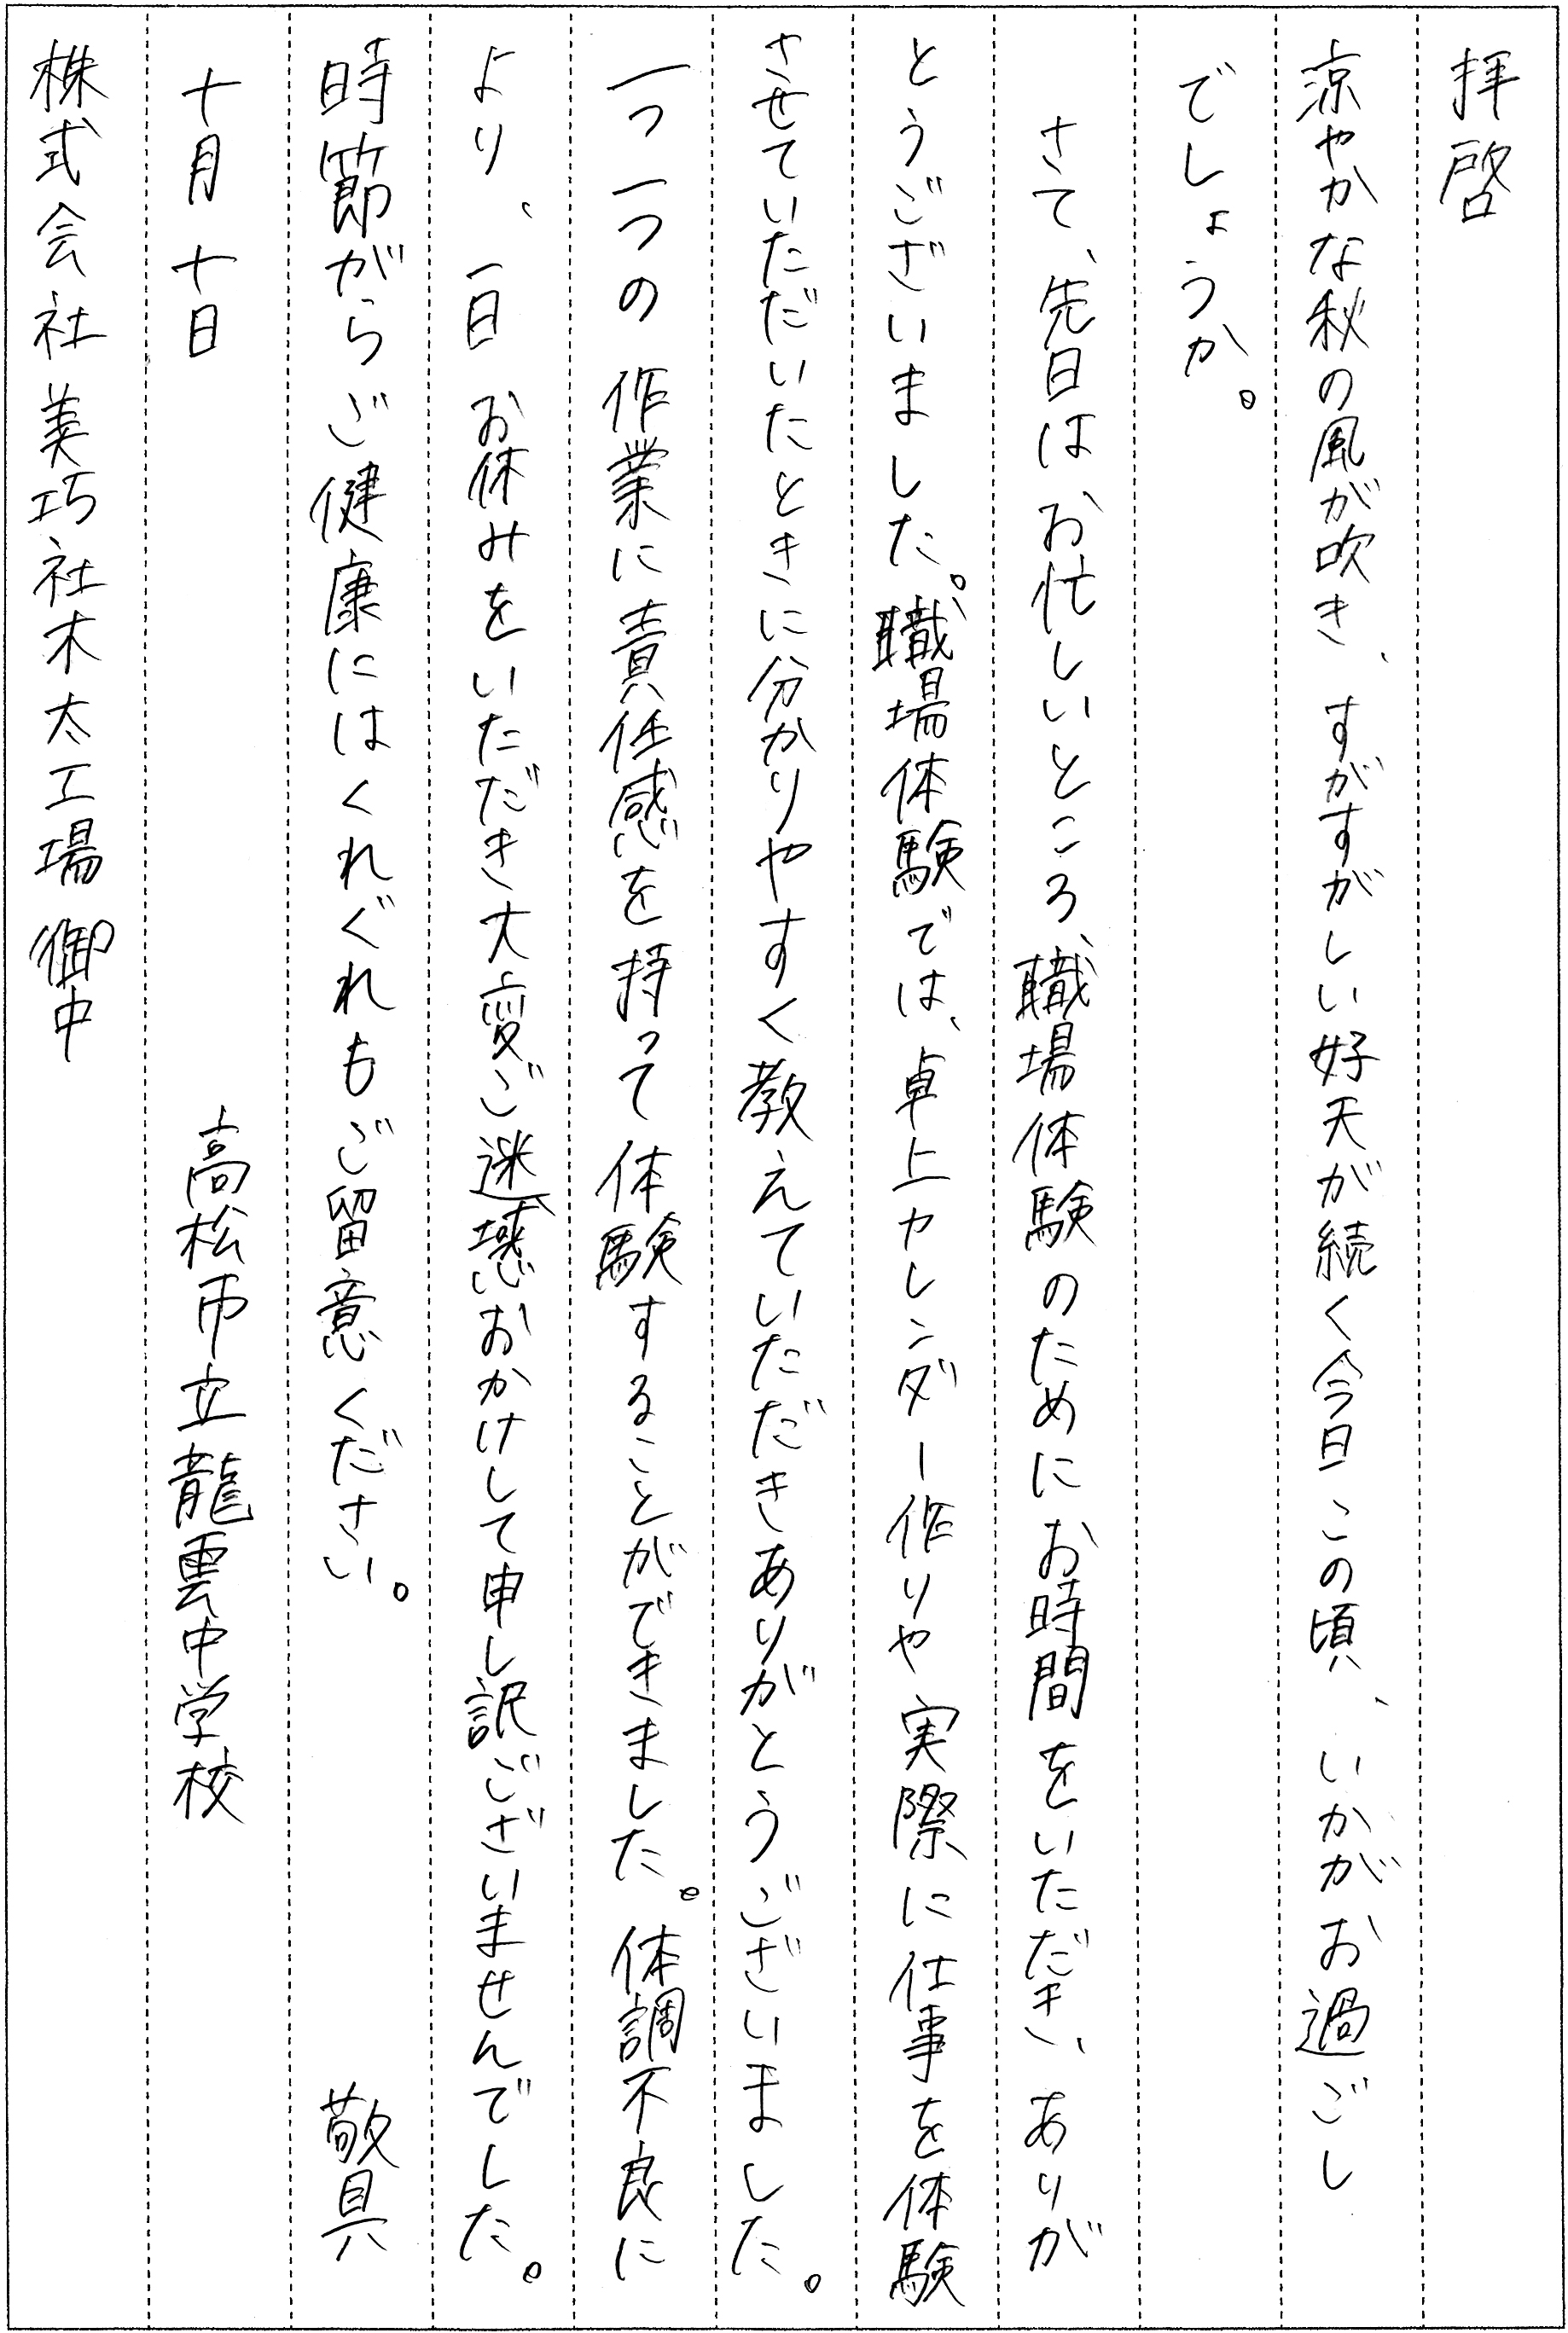 拝啓
涼やかな秋の風が吹き、すがすがしい好天が続く今日この頃、いかがお過ごし
でしょうか。
さて、先日はお忙しいところ、職場体験のためにお時間をいただき、ありが
とうございました。職場体験では、卓上カレンダー作りや実際に仕事を体験
させていただいたときに分かりやすく教えていただきありがとうございました。
一つ一つの作業に責任感を持って体験することができました。体調不良に
より、一日お休みをいただき大変ご迷惑おかけして申し訳ございませんでした。
時節がらご健康にはくれぐれもご留意ください。 敬具
十月十日 高松市立龍雲中学校
株式会社美巧社木太工場 御中